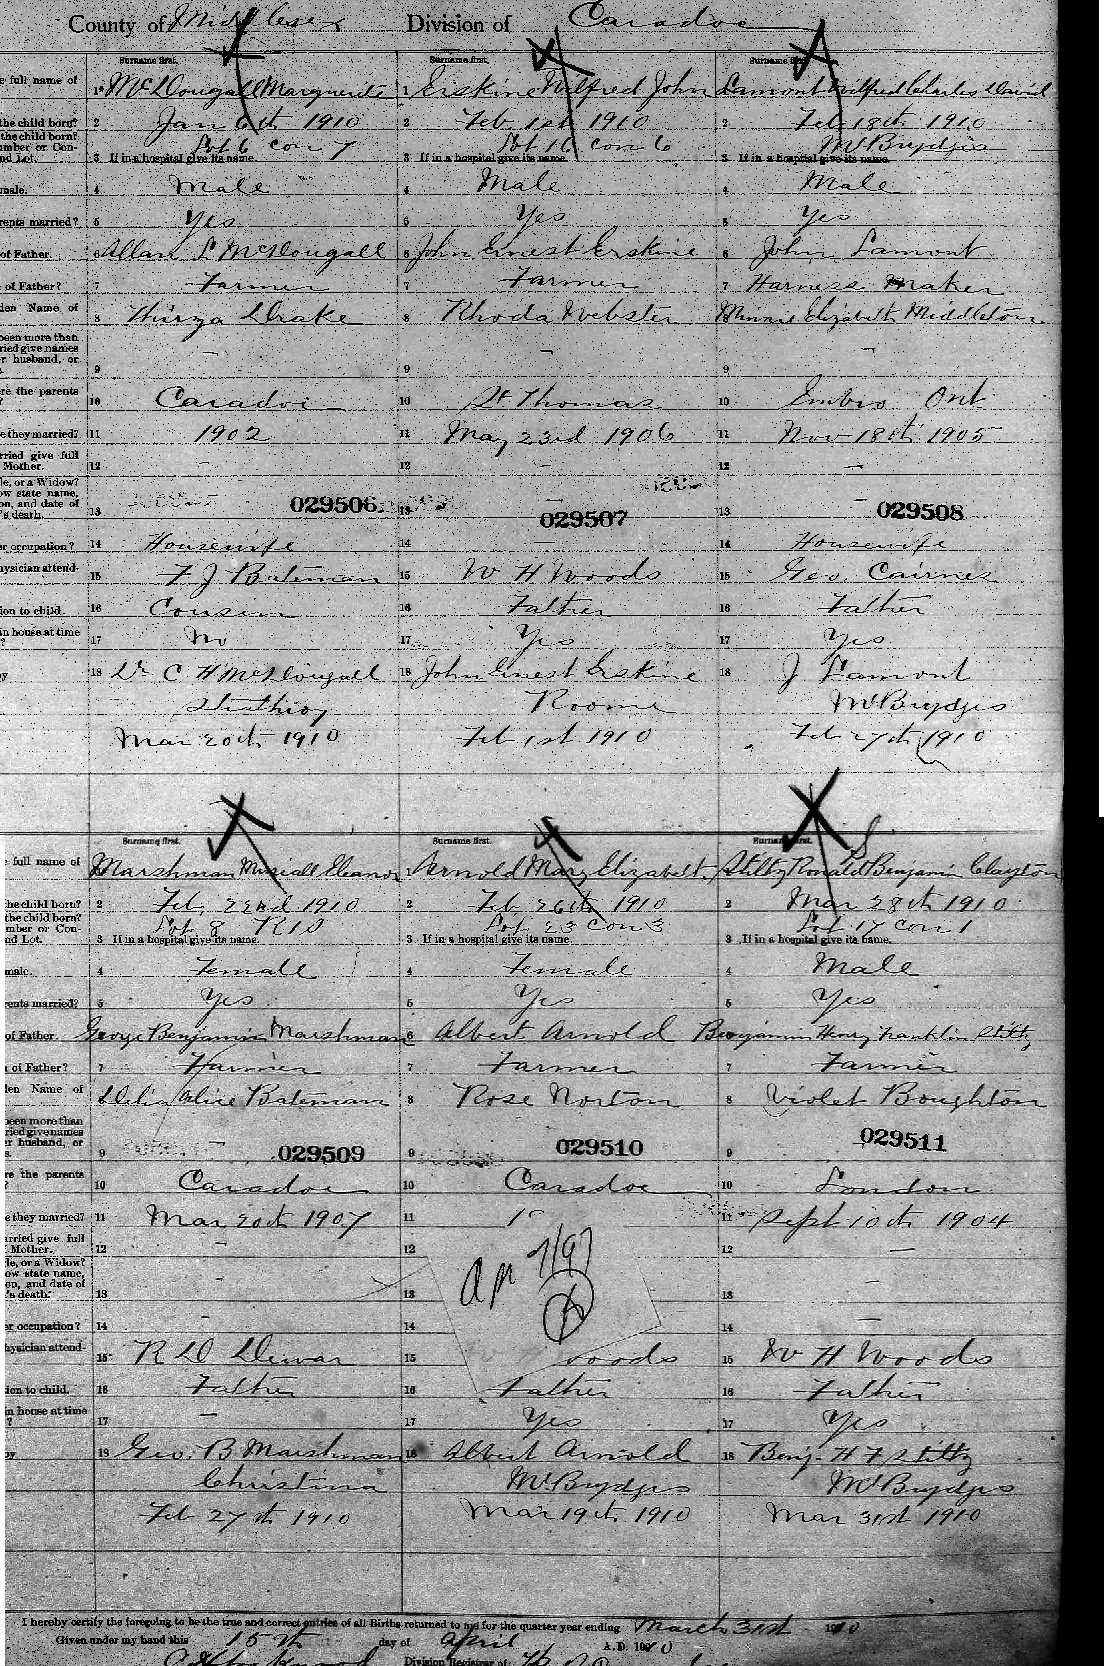 County of Middlesex Division of Caradoc
Surname first. Surname first. Surname first.
e full name of 1 McDougall Marguerite 1 Erskine Wilfred John Lamont Wilfred Charles David
the child born? 2 Jan 6th 1910 2 Feb 1st 1910 2 Feb 18th 1910
the child born? Lot 6 con 7 Lot 16 con 6 Mt Brydges
umber or Con-
nd Lot. 3 If in a hospital give its name. 3 If in a hospital give its name. 3 If in a hospital give its name.
male. 4 Male 4 Male 4 Male
rents married? 5 Yes 5 Yes 5 Yes
of Father. 6 Allan L McDougall 6 John Ernest Erskine 6 John Lamont
of Father? 7 Farmer 7 Farmer 7 Harness Maker
den Name of 8 Thirza Drake 8 Rhoda Webster 8 Minnie Elizabeth Middleton
been more than
ried give names
r husband, or
9 — 9 — 9 —
re the parents 10 Caradoc 10 St Thomas 10 Embro Ont
e they married? 11 1902 11 May 23rd 1906 11 Nov 18th 1905
rried give full
Mother. 12 — 12 — 12 —
le, or a Widow?
ow state name,
on, and date of
's death. 13 029506 13 — 029507 13 029508
er occupation? 14 Housewife 14 — 14 Housewife
hysician attend- 15 F J Bateman 15 W H Woods 15 Geo. Cairnes
ion to child. 16 Cousin 16 Father 16 Father
in house at time
? 17 No 17 Yes 17 Yes
y 18 Dr C H McDougall 18 John Ernest Erskine 18 J Lamont
Strathroy Roome Mt Brydges
Mar 20th 1910 Feb 1st 1910 Feb 27th 1910
Surname first. Surname first. Surname first.
e full name of Marshman Eleanor Arnold Mary Elizabeth Stilty Ronald Benjamin Clayton
the child born? 2 Feb, 22nd 1910 2 Feb 26th 1910 2 Mar 28th 1910
the child born? Lot 8 R 10 Lot 23 con 3 Lot 17 con 1
umber or Con-
nd Lot. 3 If in a hospital give its name. 3 If in a hospital give its name. 3 If in a hospital give its name.
male. 4 Female 4 Female 4 Male
rents married? 5 Yes 5 Yes 5 Yes
of Father. George Benjamin Marshman 6 Albert Arnold Benjamin Henry Franklin Stilty
of Father? 7 Farmer 7 Farmer 7 Farmer
den Name of Delia Alice Bateman 8 Rose Norton 8 Violet Boughton
been more than
ried give names
r husband, or
9 029509 9 029510 9 029511
re the parents 10 Caradoc 10 Caradoc 10 London
e they married? 11 Mar 20th 1907 11 11 Sept 10th 1904
rried give full
Mother. 12 12 12 —
le, or a Widow?
ow state name,
on, and date of
's death. 13 13 Ap 7/97 13
er occupation? 14 14 14 —
hysician attend- 15 R D Dewar 15 oods 15 W H Woods
ion to child. 16 Father 16 Father 16 Father
in house at time
? 17 — 17 Yes 17 Yes
y 18 Geo. B Marshman 18 Albert Arnold 18 Benj. H F Stilty
Christina Mt Brydges Mt Brydges
Feb 27th 1910 Mar 19th 1910 Mar 31st 1910
I hereby certify the foregoing to be the true and correct entries of all Births returned to me for the quarter year ending March 31st 1910
Given under my hand this 15th day of April A.D. 1910
Division Registrar of